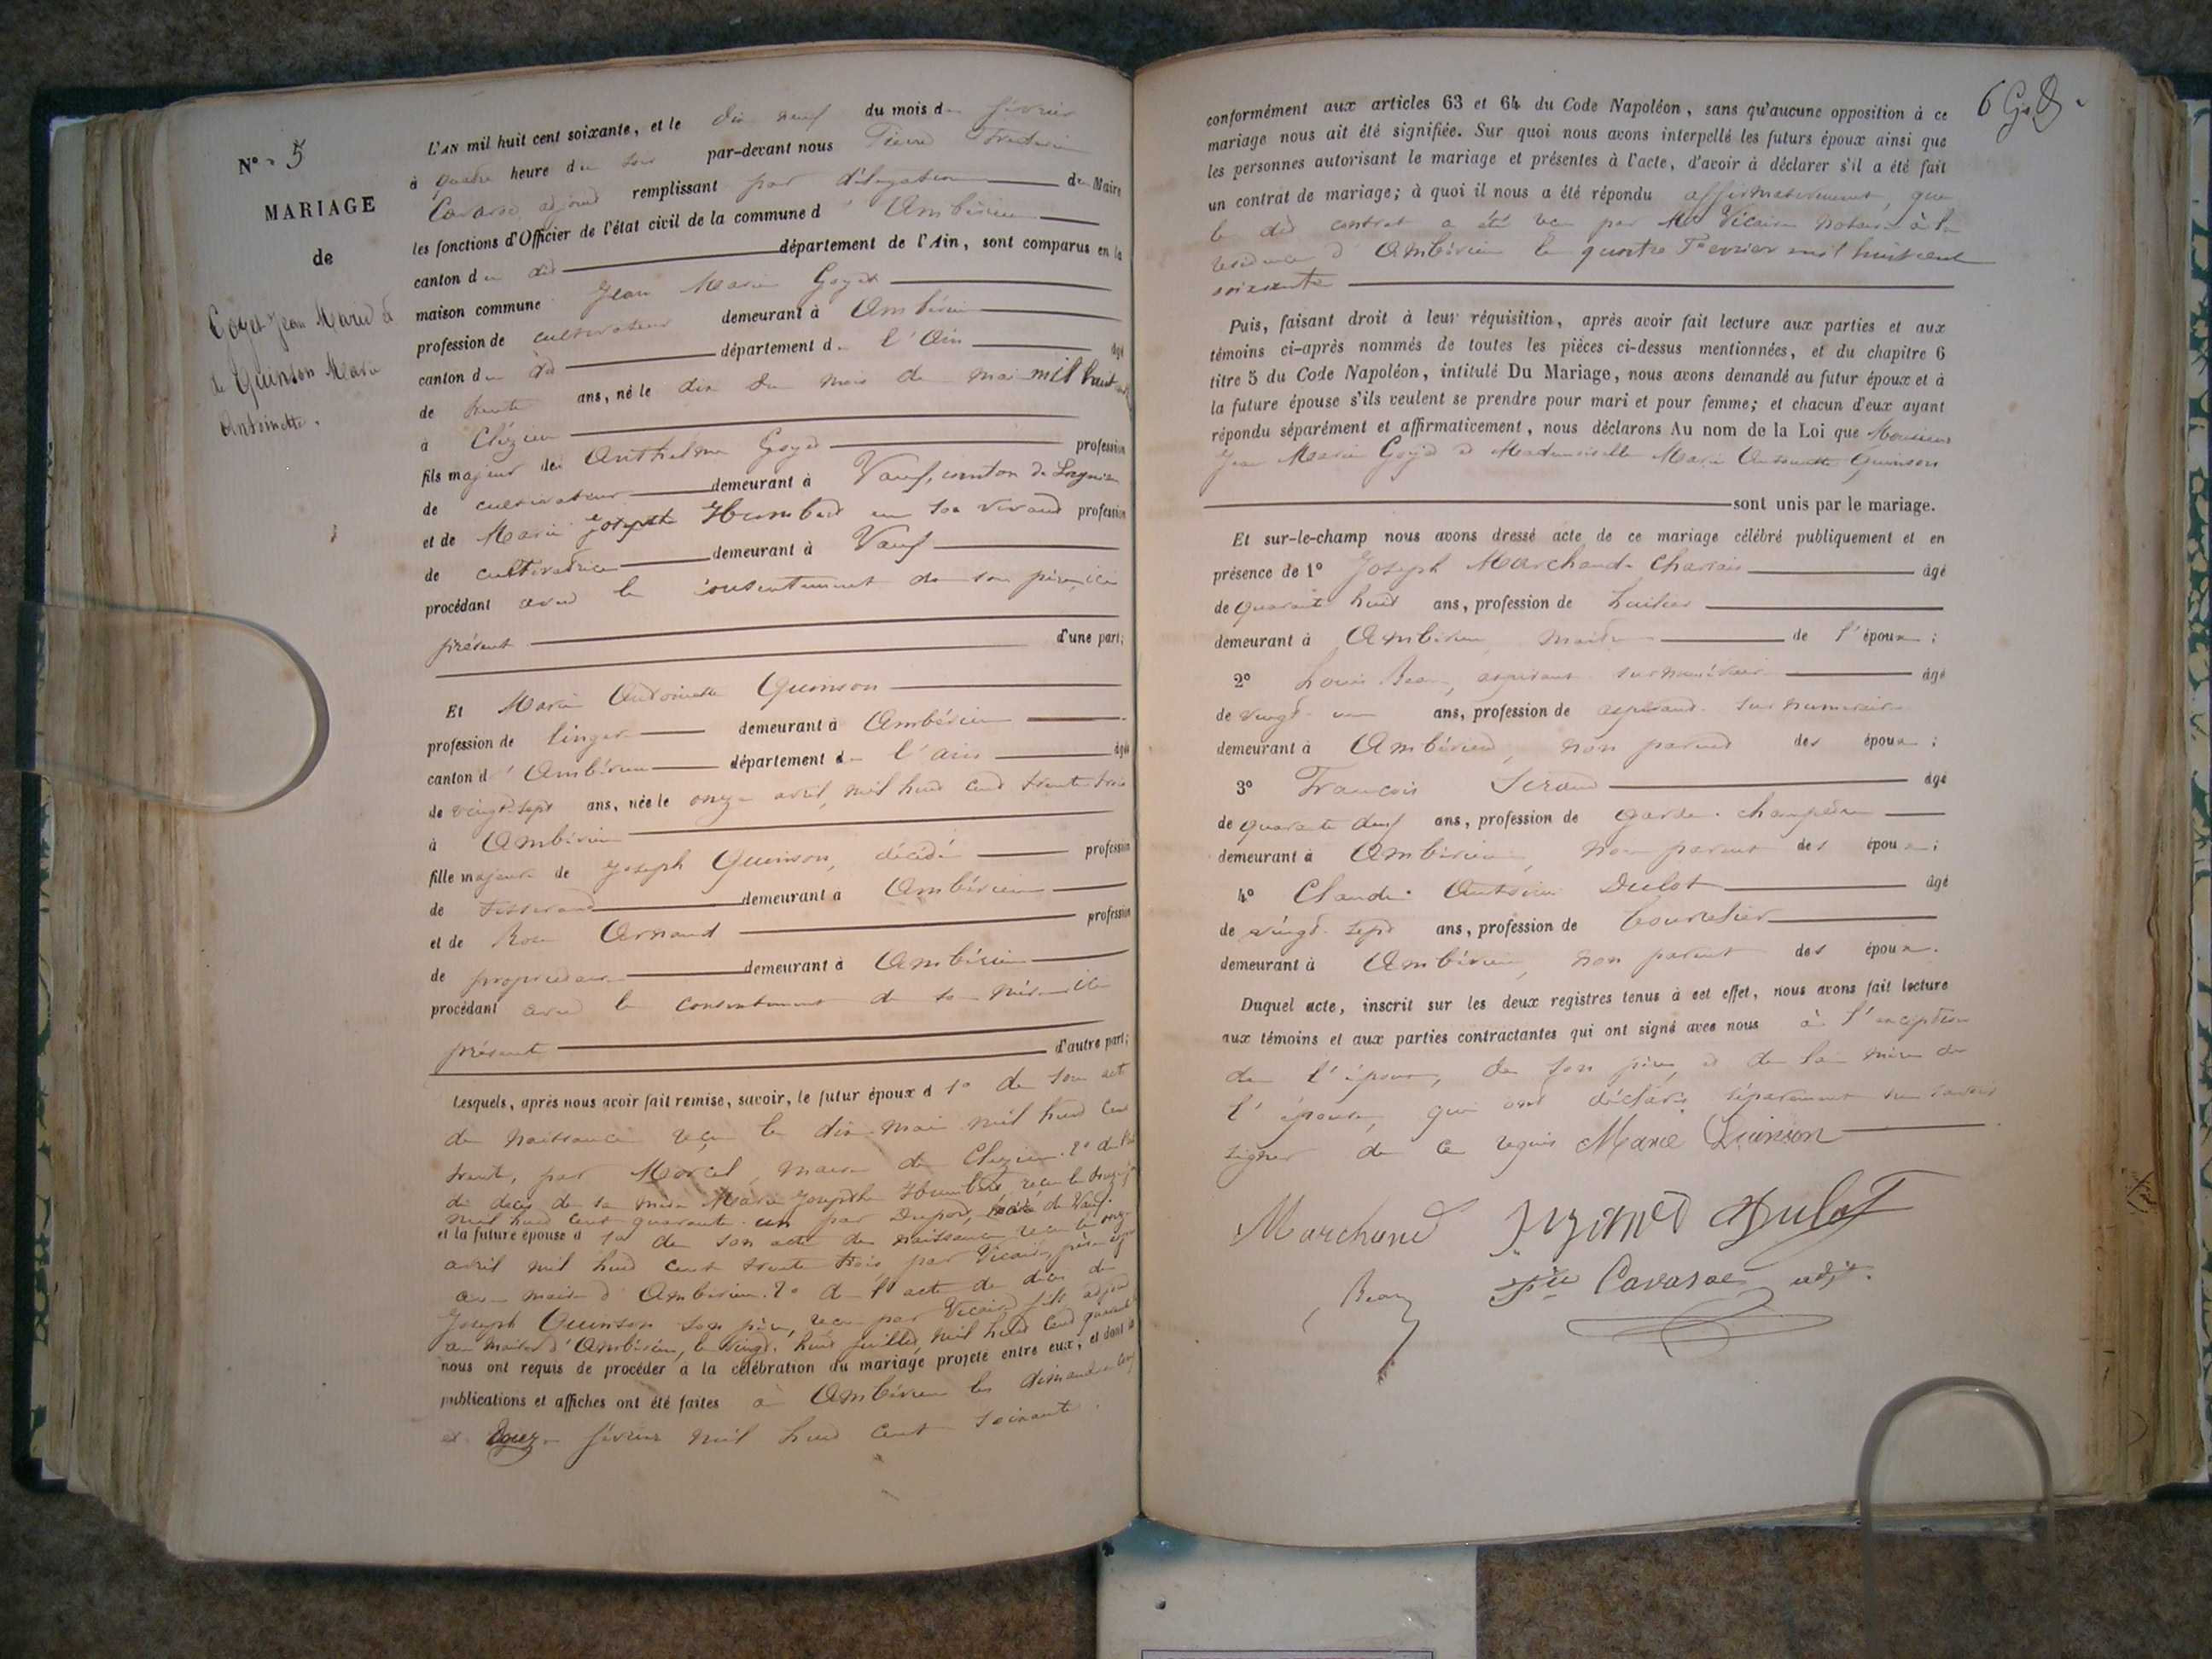 N° 5
MARIAGE
de
Goyet Jean Marie &
de Quinson Marie
Antoinette.
L'AN mil huit cent soixante, et le dix neuf du mois de février
à quatre heure du soir par-devant nous Pierre
Cavarse adjoint remplissant par délégation du Maire
les fonctions d'Officier de l'état civil de la commune d'Ambérieu
canton du dit département de l'Ain, sont comparus en la
maison commune Jean Marie Goyet
profession de cultivateur demeurant à Ambérieu
canton du dit département de l'Ain âgé
de trente ans, né le dix du mois de mai mil huit
à Cleyzieu
fils majeur de Anthelme Goyet profession
de cultivateur demeurant à Vaux, canton de Lagnieu
et de Marie Josephte Humbert en son vivant profession
de cultivatrice demeurant à Vaux
procédant avec le consentement de son père, ici
présent d'une part;
Et Marie Antoinette Quinson
profession de lingère demeurant à Ambérieu
canton d'Ambérieu département de l'ain âgée
de vingt-sept ans, née le onze avril, mil huit cent trente trois
à Ambérieu
fille majeure de Joseph Quinson, décédé profession
de tisserand demeurant à Ambérieu
et de Rose Arnaud profession
de propriétaire demeurant à Ambérieu
procédant avec le consentement de sa mère ici
présente d'autre part;
Lesquels, après nous avoir fait remise, savoir, le futur époux d 1° de son acte
de naissance reçu le dix mai mil huit cent
trente, par Morcel, maire de Cleyzieu. 2° de l'acte
de décès de sa mère Marie Josephte Humbert reçu le
mil huit cent quarante-un par Dupont, maire de Vaux.
et la future épouse d 1° de son acte de naissance reçu le onze
avril mil huit cent trente trois, par Vicaire, père
au maire d'Ambérieu. 2° de l'acte de décès de
Joseph Quinson son père, reçu par Vicaire fils adjoint
au maire d'Ambérieu, le vingt-huit juillet, mil huit cent quarante
nous ont requis de procéder à la célébration du mariage projeté entre eux, et dont les
publications et affiches ont été faites à Ambérieu les dimanches cinq
et douze février mil huit cent soixante.
6
conformément aux articles 63 et 64 du Code Napoléon, sans qu'aucune opposition à ce
mariage nous ait été signifiée. Sur quoi nous avons interpellé les futurs époux ainsi que
les personnes autorisant le mariage et présentes à l'acte, d'avoir à déclarer s'il a été fait
un contrat de mariage; à quoi il nous a été répondu affirmativement, que
le dit contrat a été reçu par Me Vicaire notaire à la
résidence d'Ambérieu le quatre Fevrier mil huit cent
soixante
Puis, faisant droit à leur réquisition, après avoir fait lecture aux parties et aux
témoins ci-après nommés de toutes les pièces ci-dessus mentionnées, et du chapitre 6
titre 5 du Code Napoléon, intitulé Du Mariage, nous avons demandé au futur époux et à
la future épouse s'ils veulent se prendre pour mari et pour femme; et chacun d'eux ayant
répondu séparément et affirmativement, nous déclarons Au nom de la Loi que Monsieur
Jean Marie Goyet et Mademoiselle Marie Antoinette Quinson
sont unis par le mariage.
Et sur-le-champ nous avons dressé acte de ce mariage célébré publiquement et en
présence de 1° Joseph Marchand âgé
de quarante huit ans, profession de huilier
demeurant à Ambérieu, de l'époux;
2° Louis Bear, aspirant surnuméraire âgé
de vingt-un ans, profession de aspirant surnuméraire
demeurant à Ambérieu, non parent des époux;
3° François Serand âgé
de quarante deux ans, profession de garde-champêtre
demeurant à Ambérieu, non parent des époux;
4° Claude Antoine Dulot âgé
de vingt-sept ans, profession de bourrelier
demeurant à Ambérieu, non parent des époux.
Duquel acte, inscrit sur les deux registres tenus à cet effet, nous avons fait lecture
aux témoins et aux parties contractantes qui ont signé avec nous à l'exception
de l'époux, de son père, et de la mère de
l'épouse, qui ont déclaré séparément ne savoir
signer de ce requis Marie Quinson
Marchand Dulot
Bear Cavarse adj.